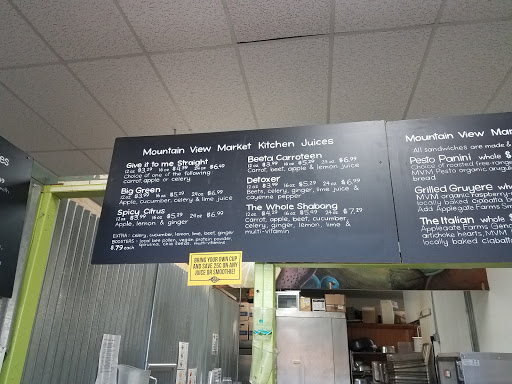 Mountain View Market Kitchen Juices
Give it to me Straight
Choice of one of the following
carrot apple or celery
Big Green
Apple, cucumber, celery & lime
Spicy Citrus
12 oz $3.99 16 oz $5.29 24 oz $6.99
Apple, lemon & ginger
EXTRA: celery, cucumber, lemon, lime, beet, ginger
BOOSTERS: local bee pollen, vegan protein powder,
spirulina, chia seeds, multi-vitamins
$.79 each
Beeta Carroteen
12 oz $3.99 16 oz $5.29 24 oz $6.99
Carrot, beet, apple & lemon juice
Detoxer
12 oz $3.99 16 oz $5.29 24 oz $6.99
Beets, celery, ginger, lime juice &
cayenne pepper
The Whole Shabang
12 oz $4.29 16 oz $5.99 24 oz $7.29
Carrot, apple, beet, cucumber
celery, ginger, lemon, lime &
multi-vitamin
BRING YOUR OWN CUP
AND SAVE 25¢ ON ANY
JUICE OR SMOOTHIE!
Mountain View Mar
All sandwiches are made &
Pesto Panini whole $
Choice of roasted free-range
MVM Pesto organic arugula
bread
Grilled Gruyere whole
MVM organic raspberry
locally baked ciabatta
Add Applegate Farms
The Italian whole $
Applegate Farms Genoa
artichoke hearts, MVM
locally baked ciabatta